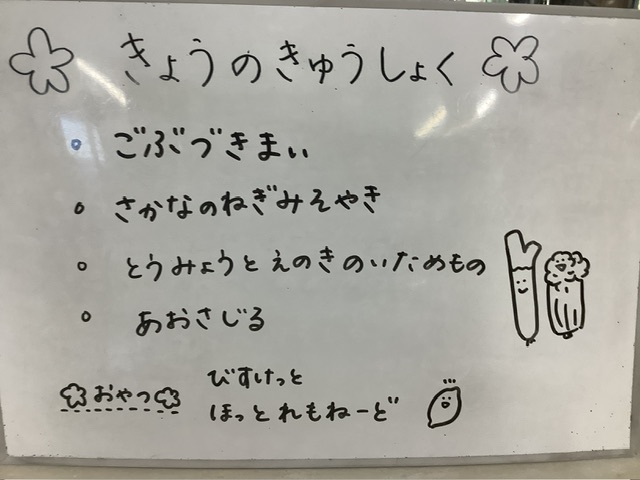 きょうのきゅうしょく
ごぶづきまい
さかなのねぎみそやき
とうみょうとえのきのいためもの
あおさじる
おやつ
びすけっと
ほっとれもねーど